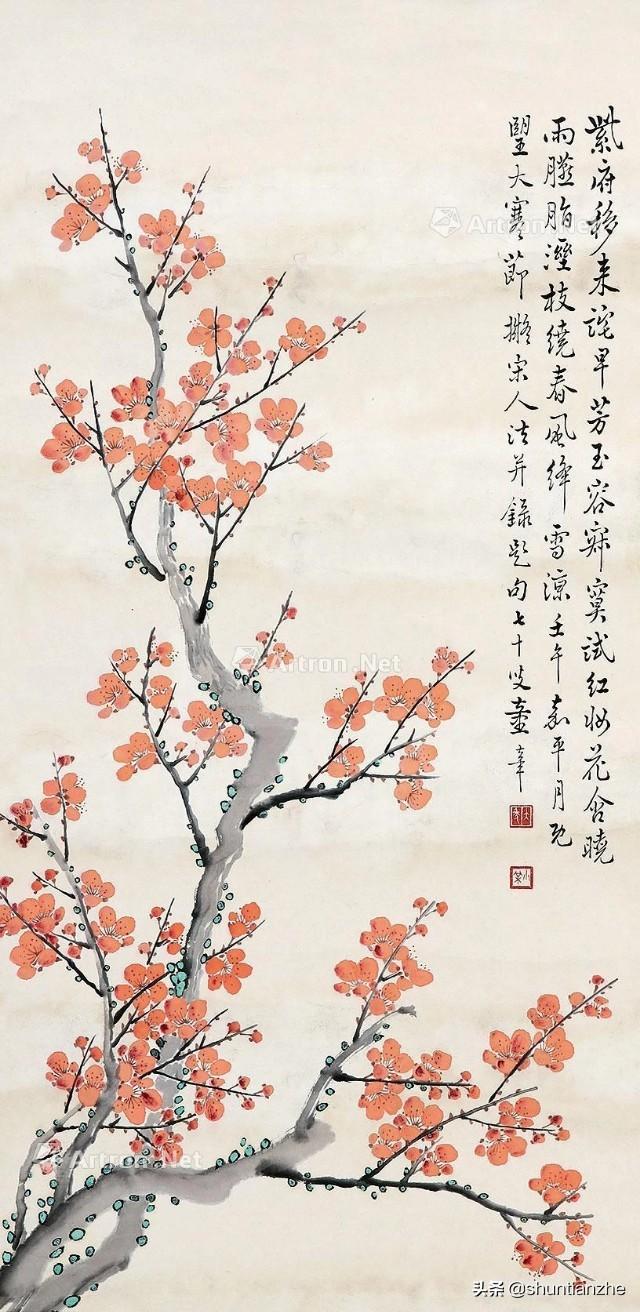 紫府移来詫早芳玉容寂寞試红妆花含曉
雨臙脂溼枝繞春風绛雪凉壬午嘉平月既
朢大寒節擬宋人法并錄題句七十叟
Artron.Net
Artron.Net
Artron.Net
头条 @shuntianzhe